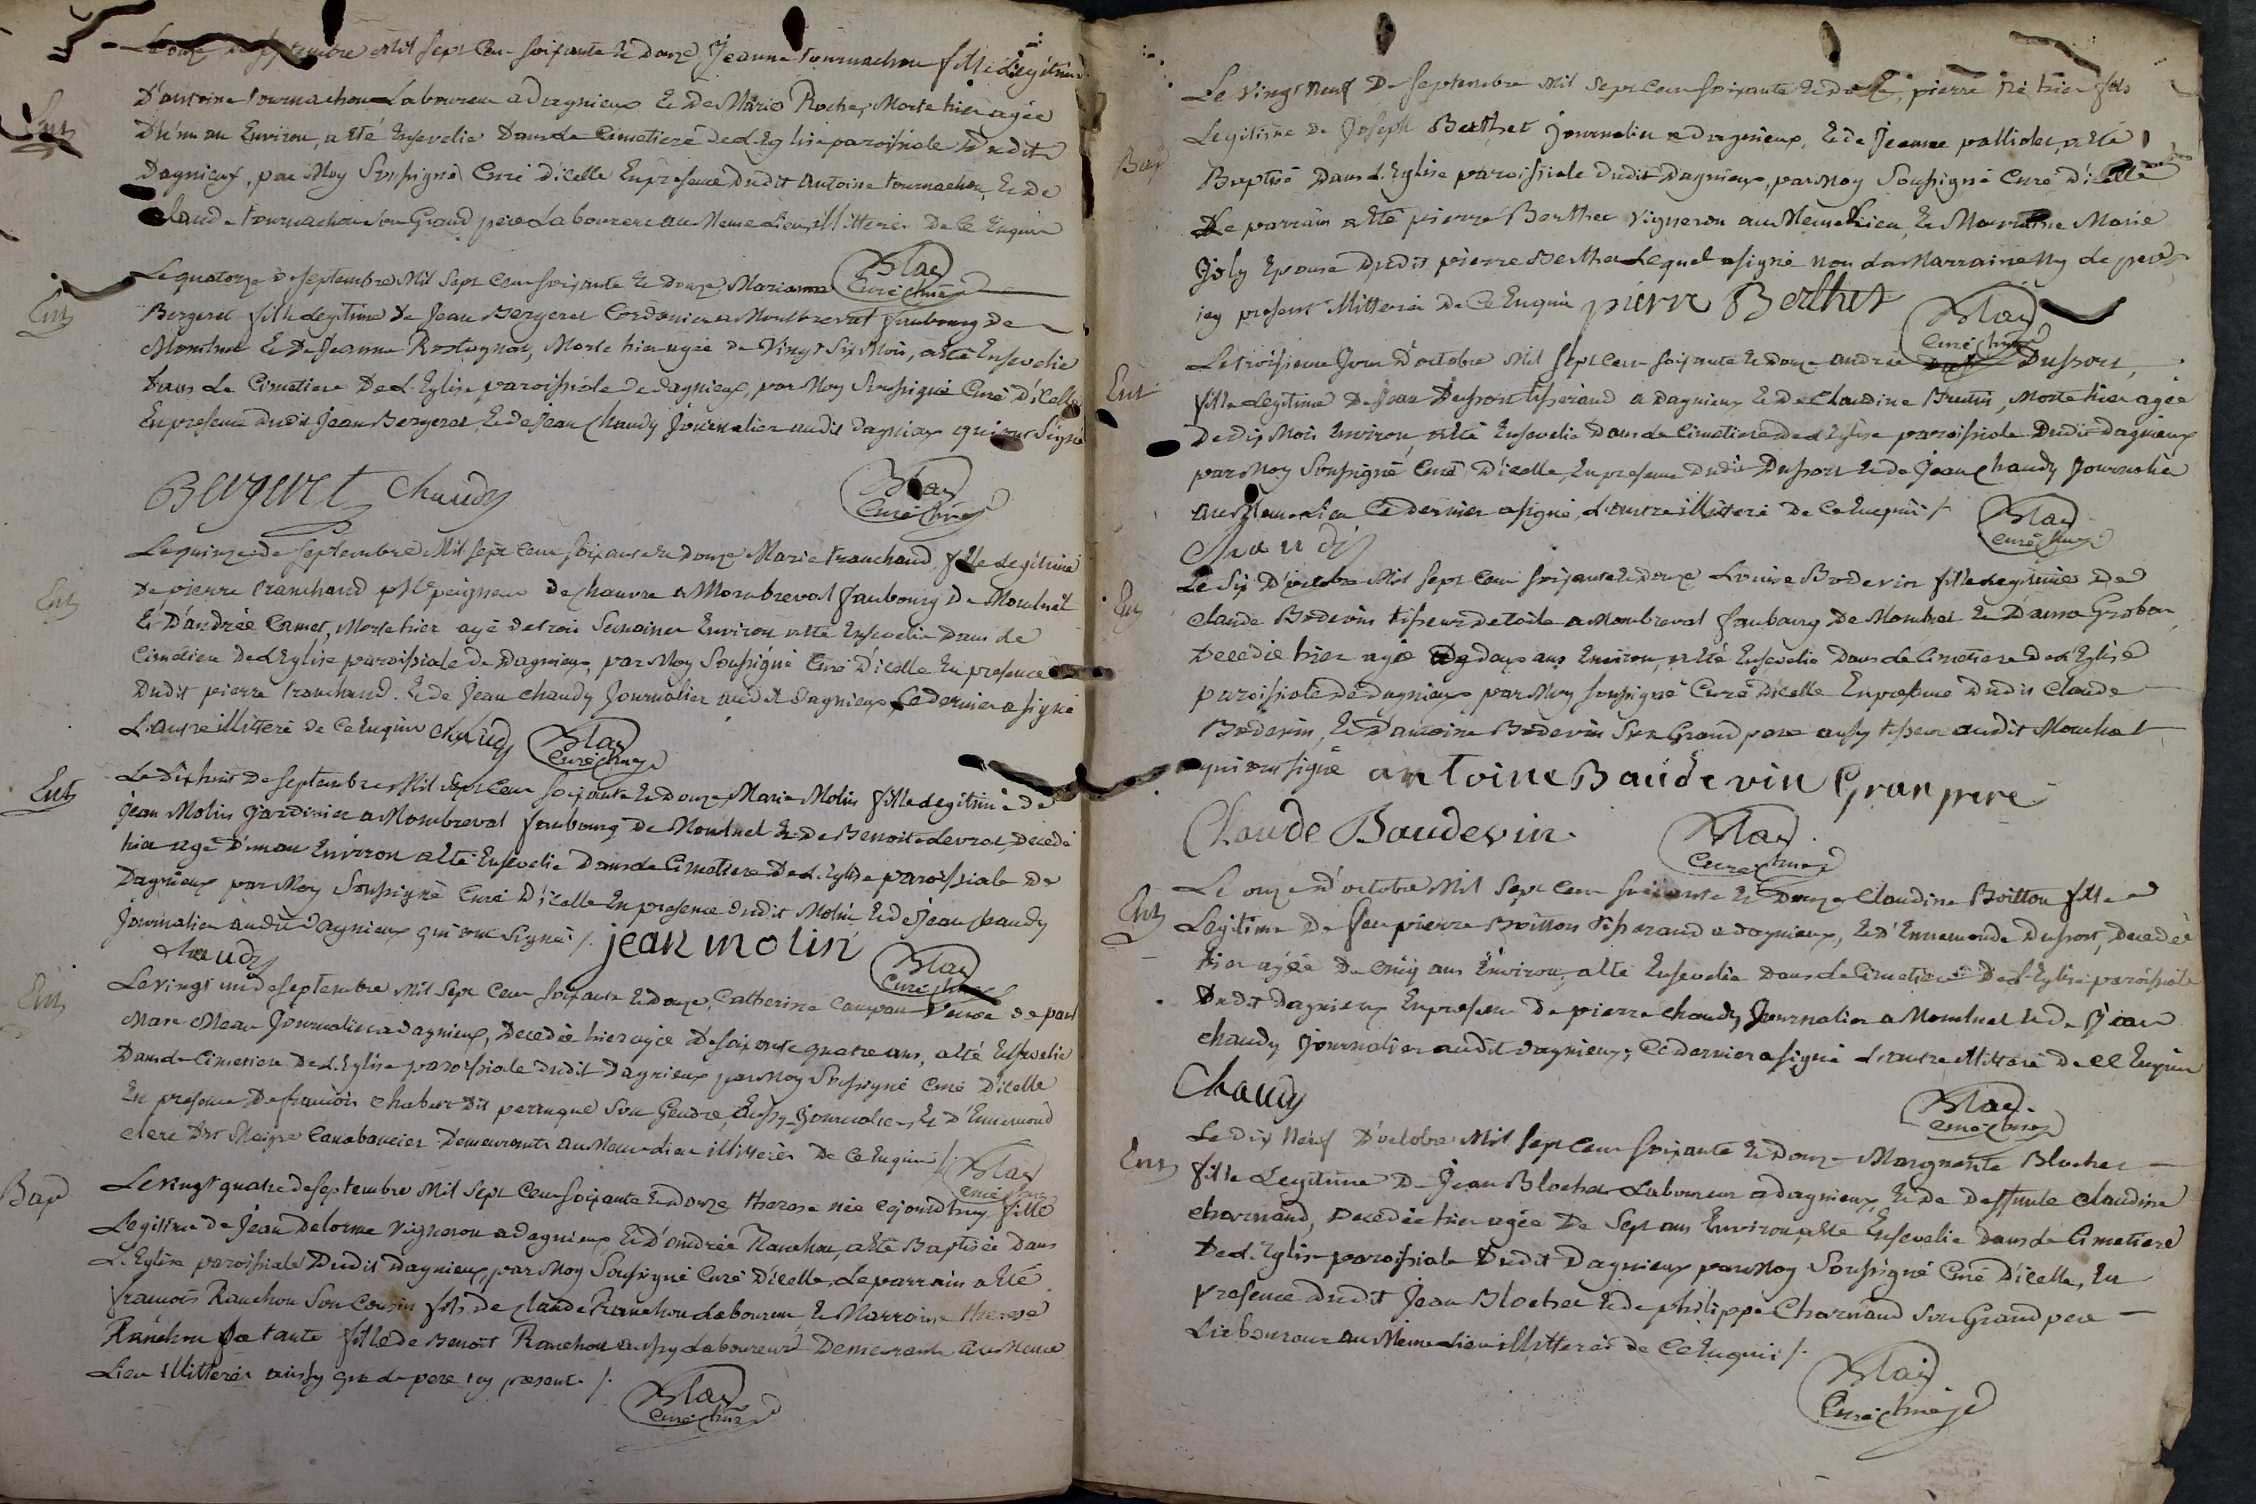 Le onze de septembre Mil sept Cent soixante et Douze Jeanne tournachon fille Legitime
Ent
D'antoine tournachon Laboureur a Dagnieux et De Marie Roche, Morte hier agée
D'un an Environ, a été Ensevelie Dans Le Cimetiere de L'Eglise paroissiale Dudit
Dagnieux, par Moy Soussigné Curé D'icelle En presence Dudit Antoine tournachon, et De
Claude tournachon son Grand pere Laboureur au Meme Lieu, illitterés De Ce Enquis
Blad
Curé
Le quatorze de septembre Mil Sept Cent soixante et Douze Marianne
Ent
Bergeret fille Legitime De Jean Bergeret Cordonier a Monbreval faubourg De
Montluel et De Jeanne Rostagnat, Morte hier agée de Vingt Six Mois, a été Ensevelie
Dans Le Cimetiere De L'Eglise paroissiale De Dagnieux, par Moy Soussigné Curé D'icelle
En presence Dudit Jean Bergeret, et De Jean Chaudy Journalier audit Dagnieux qui ont Signé
Bergeret Chaudy
Blad
Curé
Le quinze de septembre Mil sept Cent soixante et Douze Marie tranchand fille Legitime
Ent
De pierre tranchand peigneur de chanvre a Monbreval faubourg De Montluel
et D'andrée Comet, Morte hier agé de trois Semaines Environ a été Ensevelie Dans Le
Cimetiere De L'Eglise paroissiale De Dagnieux, par Moy Soussigné Curé D'icelle En presence
Dudit pierre tranchand et de Jean chaudy Journalier audit Dagnieux, Ce dernier a signé
L'autre illitteré de Ce Enquis Chaudy
Blad
Curé
Le Dix huit De septembre Mil Sept Cent soixante et Douze Marie Molin fille Legitime de
Ent
Jean Molin Jardinier a Monbreval faubourg De Montluel et De Benoite Levrat, Decedé
hier agé D'un an Environ a été Ensevelie Dans Le Cimetiere De L'Eglise paroissiale De
Dagnieux par Moy Soussigné Curé D'icelle En presence Dudit Molin et de Jean Chaudy
Journalier audit Dagnieux qui ont Signé /. jean molin
Chaudy
Blad
Curé
Le vingt un de septembre Mil Sept Cent soixante et Douze, Catherine Veuve de
Ent
Marc Journalier a Dagnieux, Decedée hier agée De soixante quatre ans, a été Ensevelie
Dans Le Cimetiere De L'Eglise paroissiale Dudit Dagnieux par Moy Soussigné Curé D'icelle
En presence De francois Chabert Dit perruque Son Gendre, aussy Journalier, et D'Ennemond
clerc Dit Maigre Cabaretier Demeurants au Meme Lieu illitterés De Ce Enquis /.
Blad
Curé
Le vingt quatre de septembre Mil Sept Cent soixante et Douze therese née Cejourd'huy fille
Bap
Legitime De Jean Delorme Vigneron a Dagnieux et D'andrée Ranchon, a été Baptisée Dans
L'Eglise paroissiale Dudit Dagnieux, par Moy Soussigné Curé D'icelle, Le parrain a été
francois Ranchon Son Cousin fils De Claude Ranchon Laboureur, et Marraine therese
Ranchon sa tante fille De Benoit Ranchon aussy Laboureur Demeurants au Meme
Lieu illitterés aussy que Le pere icy present /.
Blad
Curé
Le vingt Neuf De septembre Mil Sept Cent soixante et Douze, pierre né hier fils
Legitime De Joseph Berthet Journalier a Dagnieux, et de Jeanne palliolet, a été
Bap
Baptisé Dans L'Eglise paroissiale Dudit Dagnieux, par Moy Soussigné Curé D'icelle
Le parrain a été pierre Berthet Vigneron au Meme Lieu, et Marraine Marie
Joly Epouse Dudit pierre Berthet Lequel a signé non La Marraine Ny Le pere
icy present illitterés De Ce Enquis pierre Berthet
Blad
Curé
Le troisieme Jour D'octobre Mil sept Cent soixante et Douze andrée Dussort,
Ent
fille Legitime De Jean Dussort tisserand a Dagnieux et De Claudine Brutin, Morte hier agée
De Dix Mois Environ a été Ensevelie Dans Le Cimetiere De L'Eglise paroissiale Dudit Dagnieux
par Moy Soussigné Curé D'icelle, En presence Dudit Dussort et De Jean Chaudy Journalier
au Meme Lieu Ce Dernier a signé, L'autre illitteré De Ce Enquis /.
Chaudy
Blad
Curé
Le Six D'octobre Mil sept Cent soixante et Douze Louise Bodevin fille Legitime De
Ent
Claude Bodevin tisseur De toile a Monbreval faubourg De Montluel et D'anna Grobon
Decedée hier agée De Deux ans Environ, a été Ensevelie Dans Le Cimetiere De L'Eglise
paroissiale De Dagnieux par Moy soussigné Curé D'icelle En presence Dudit Claude
Bodevin, et D'antoine Bodevin Son Grand pere aussy tisseur audit Montluel
qui ont signé antoine Baudevin Gran pere
Claude Baudevin.
Blad
Curé
Le onze D'octobre Mil Sept Cent soixante et Douze Claudine Boitton fille
Ent
Legitime De feu pierre Boitton tisserand a Dagnieux, et D'Ennemonde Dussort, Decedée
hier agée De Cinq ans Environ, a été Ensevelie Dans Le Cimetiere De L'Eglise paroissiale
Dudit Dagnieux En presence De pierre chaudy Journalier a Montluel et De Jean
chaudy Journalier audit Dagnieux, Ce dernier a signé L'autre illitteré De Ce Enquis
Chaudy
Blad.
Curé
Le Dix Neuf D'octobre Mil Sept Cent soixante et Douze Marguerite Blochet
Ent
fille Legitime De Jean Blochet Laboureur a Dagnieux, et De Deffunte Claudine
Charnand, Decedée hier agée De Sept ans Environ, a été Ensevelie Dans Le Cimetiere
De L'Eglise paroissiale Dudit Dagnieux par Moy Soussigné Curé D'icelle, En
presence Dudit Jean Blochet et De philippe Charnand Son Grand pere
Laboureur au Meme Lieu illitterés de Ce Enquis /.
Blad
Curé